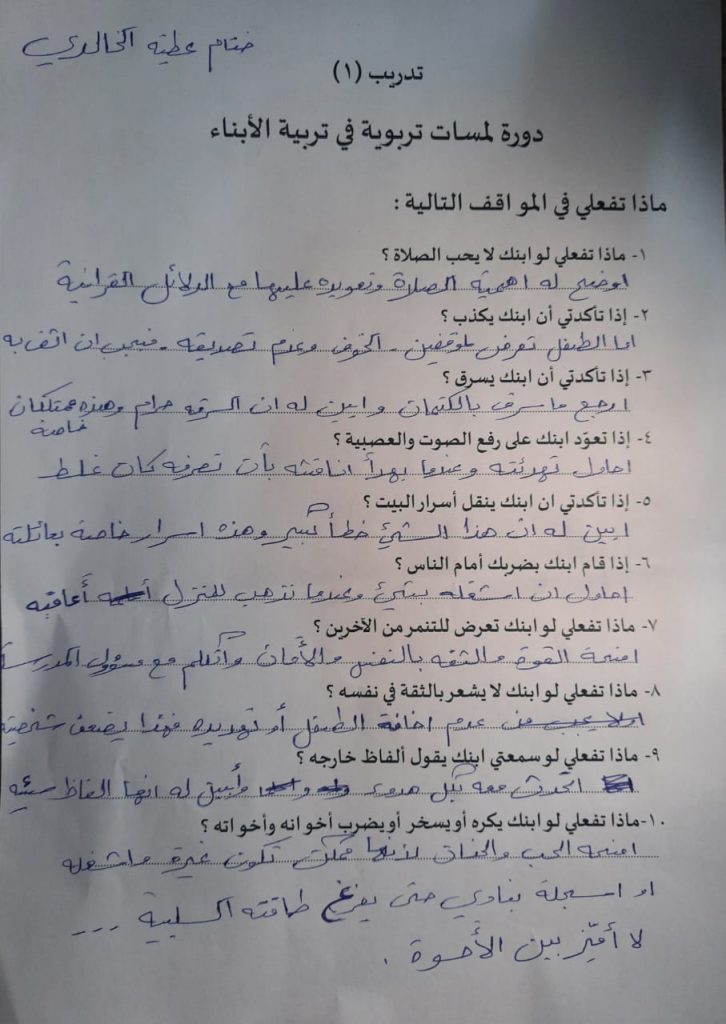 ختام عطيه الخالدي
تدريب (١)
دورة لمسات تربوية في تربية الأبناء
ماذا تفعلي في المواقف التالية :
١- ماذا تفعلي لو ابنك لا يحب الصلاة ؟
اوضح له اهمية الصلاة وتعويده عليها مع الدلائل القرانية
٢- إذا تأكدتي أن ابنك يكذب ؟
اما الطفل تعرض لموقفين - الخوف وعدم تصديقه - فيجب ان اثق به
٣- إذا تأكدتي أن ابنك يسرق ؟
ارجع ما سرق بالكتمان وابين له ان السرقه حرام وهذه ممتلكات
خاصة
٤- إذا تعوّد ابنك على رفع الصوت والعصبية ؟
احاول تهدئته وعندما يهدأ اناقشه بأن تصرفه كان غلط
٥- إذا تأكدتي ان ابنك ينقل أسرار البيت ؟
ابين له ان هذا الشيئ خطأ كبير وهذه اسرار خاصة بعائلته
٦- إذا قام ابنك بضربك أمام الناس ؟
احاول ان اشغله بشيئ وعندما نذهب للمنزل أعاقبه
٧- ماذا تفعلي لو ابنك تعرض للتنمر من الآخرين ؟
امنحة القوة والثقه بالنفس والأمان وأتكلم مع مسؤولي المدرسة
٨- ماذا تفعلي لو ابنك لا يشعر بالثقة في نفسه ؟
عدم اخافة الطفل أو تهديده فهذا يضعف شخصيته
٩- ماذا تفعلي لو سمعتي ابنك يقول ألفاظ خارجه ؟
اتحدث معه بكل هدوء وأبين له انها الفاظ سيئه
١٠-ماذا تفعلي لو ابنك يكره أو يسخر أو يضرب أخوانه وأخواته ؟
امنحه الحب والحنان لأنها ممكن تكون غيرة واشغله
او اسجلة بنادي حتى يفرغ طاقته السلبية ...
لا أميّز بين الأخوة .